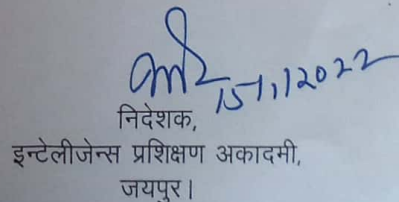 15/1/2022
निदेशक,
इन्टेलीजेन्स प्रशिक्षण अकादमी,
जयपुर।